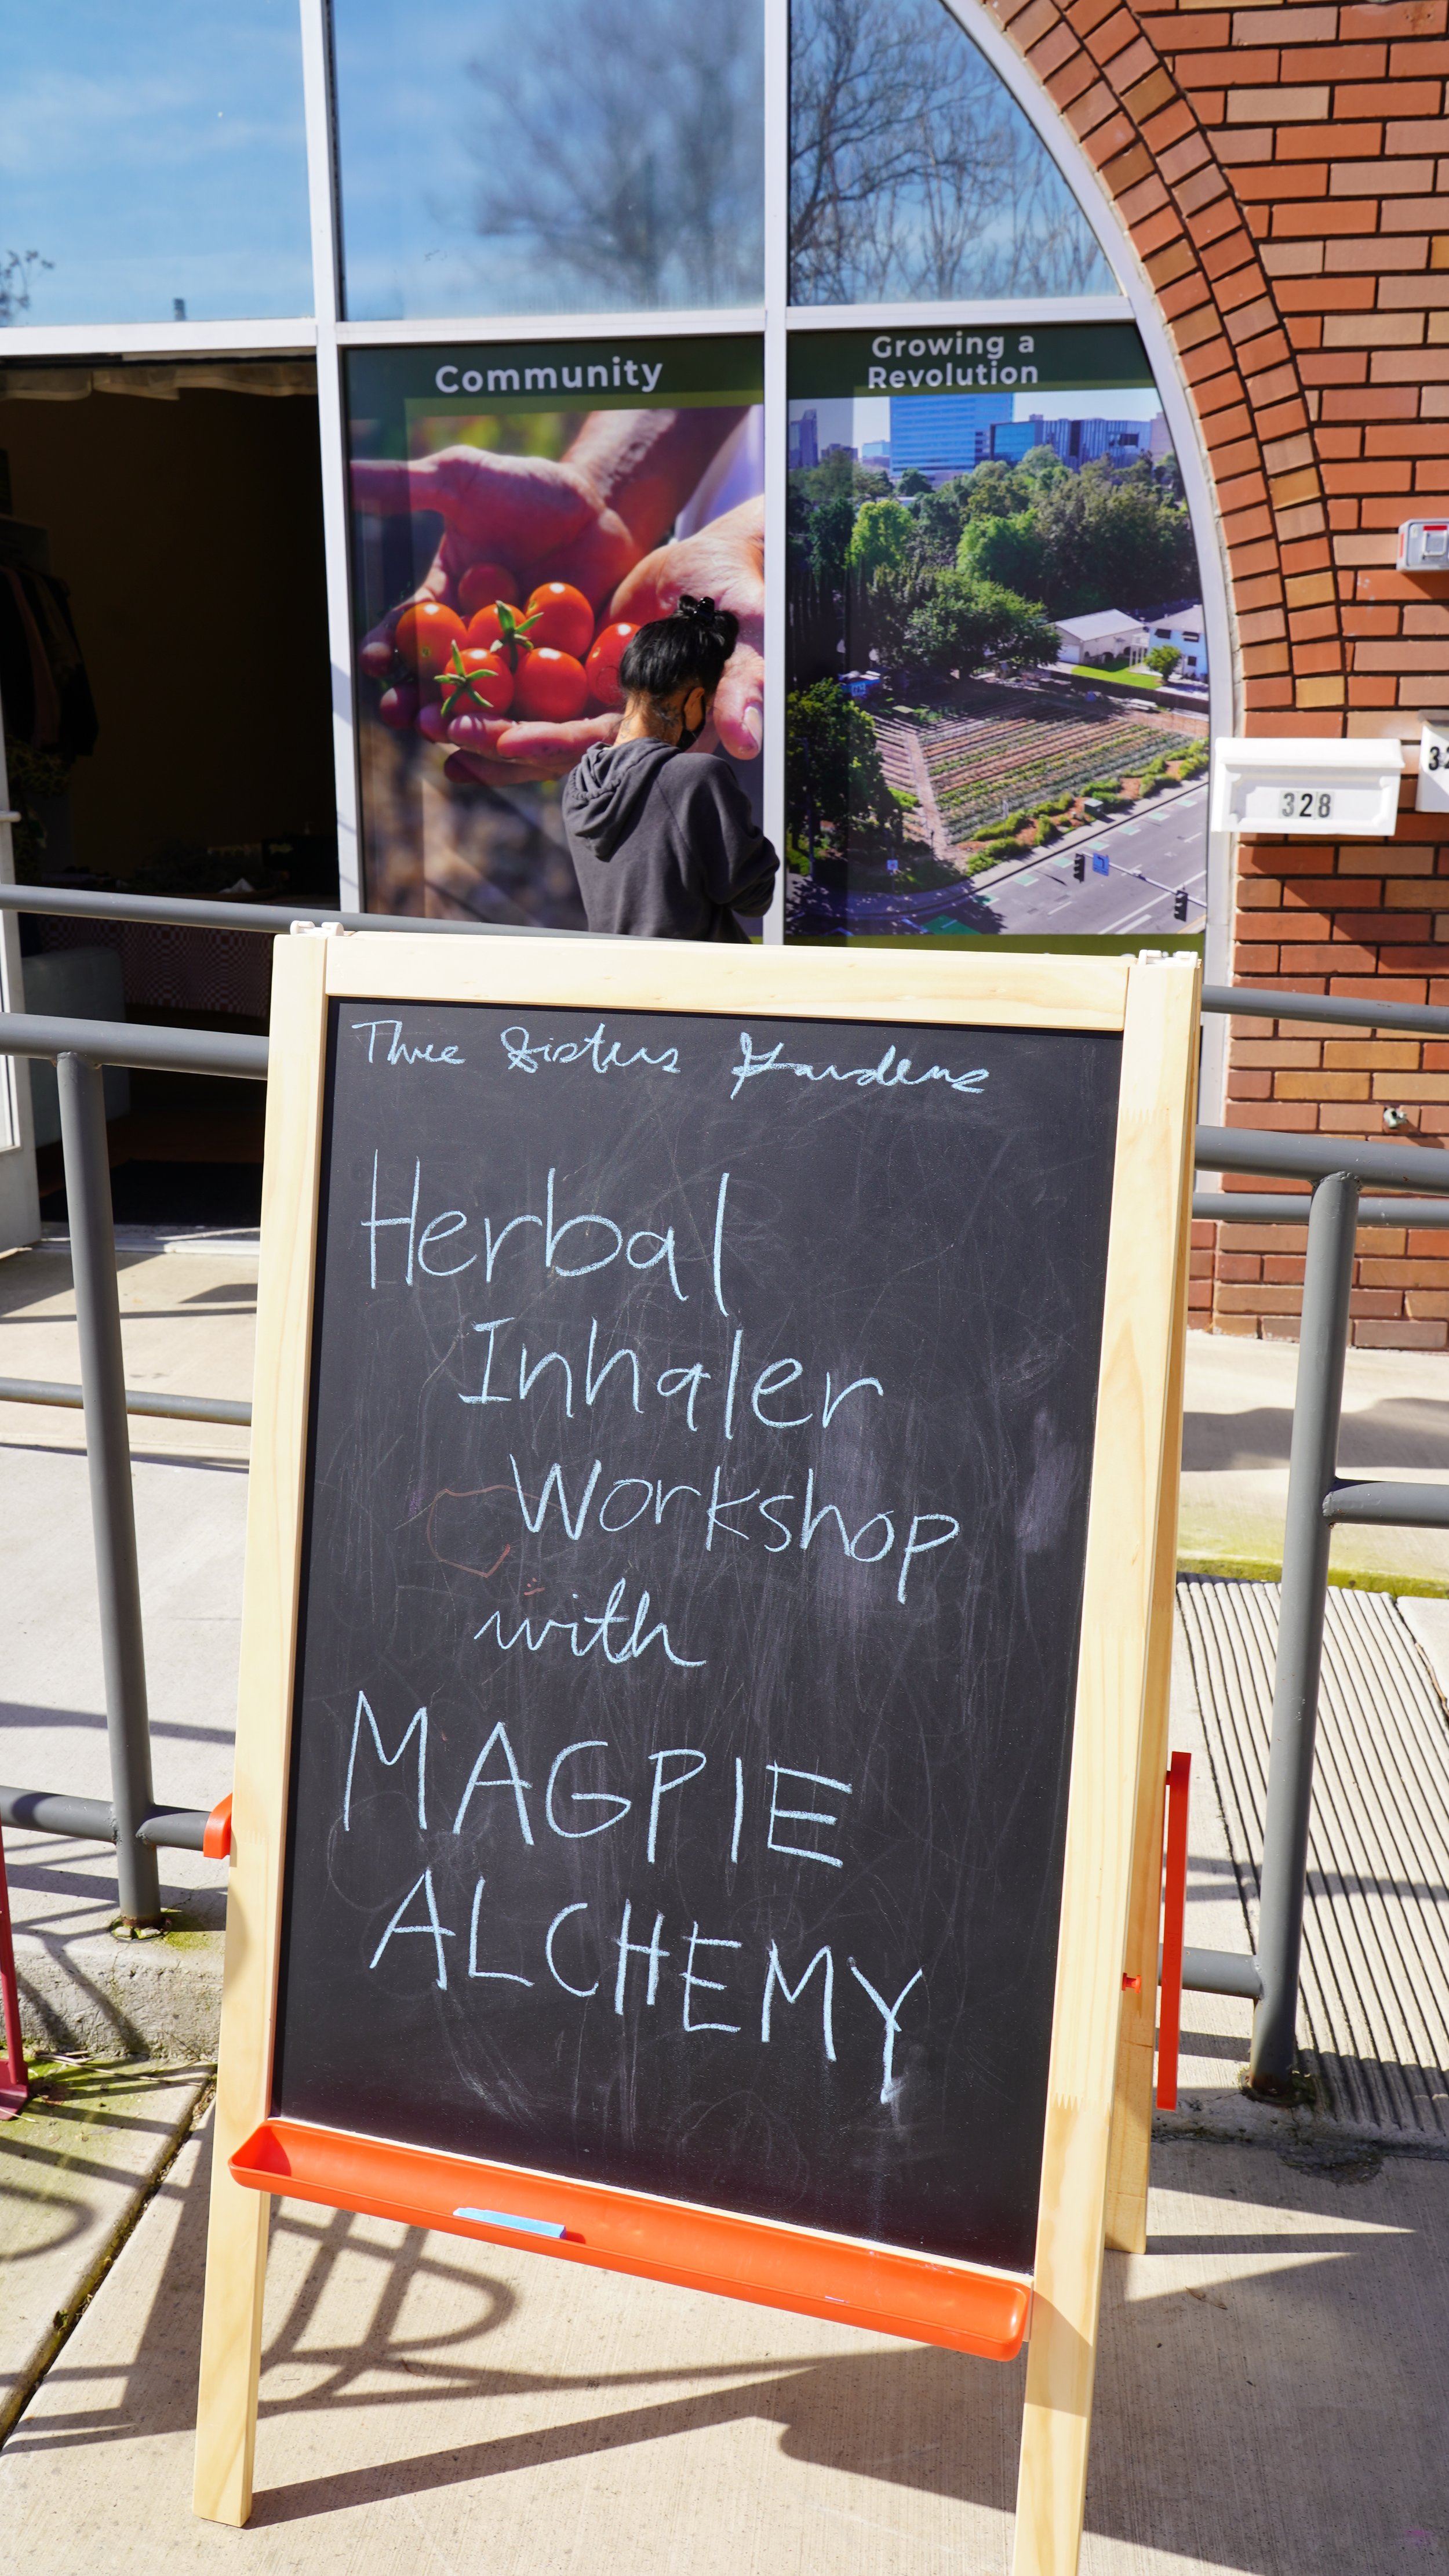 Community
Growing a
Revolution
328
Three Sisters Gardens
Herbal
Inhaler
Workshop
with
MAGPIE
ALCHEMY